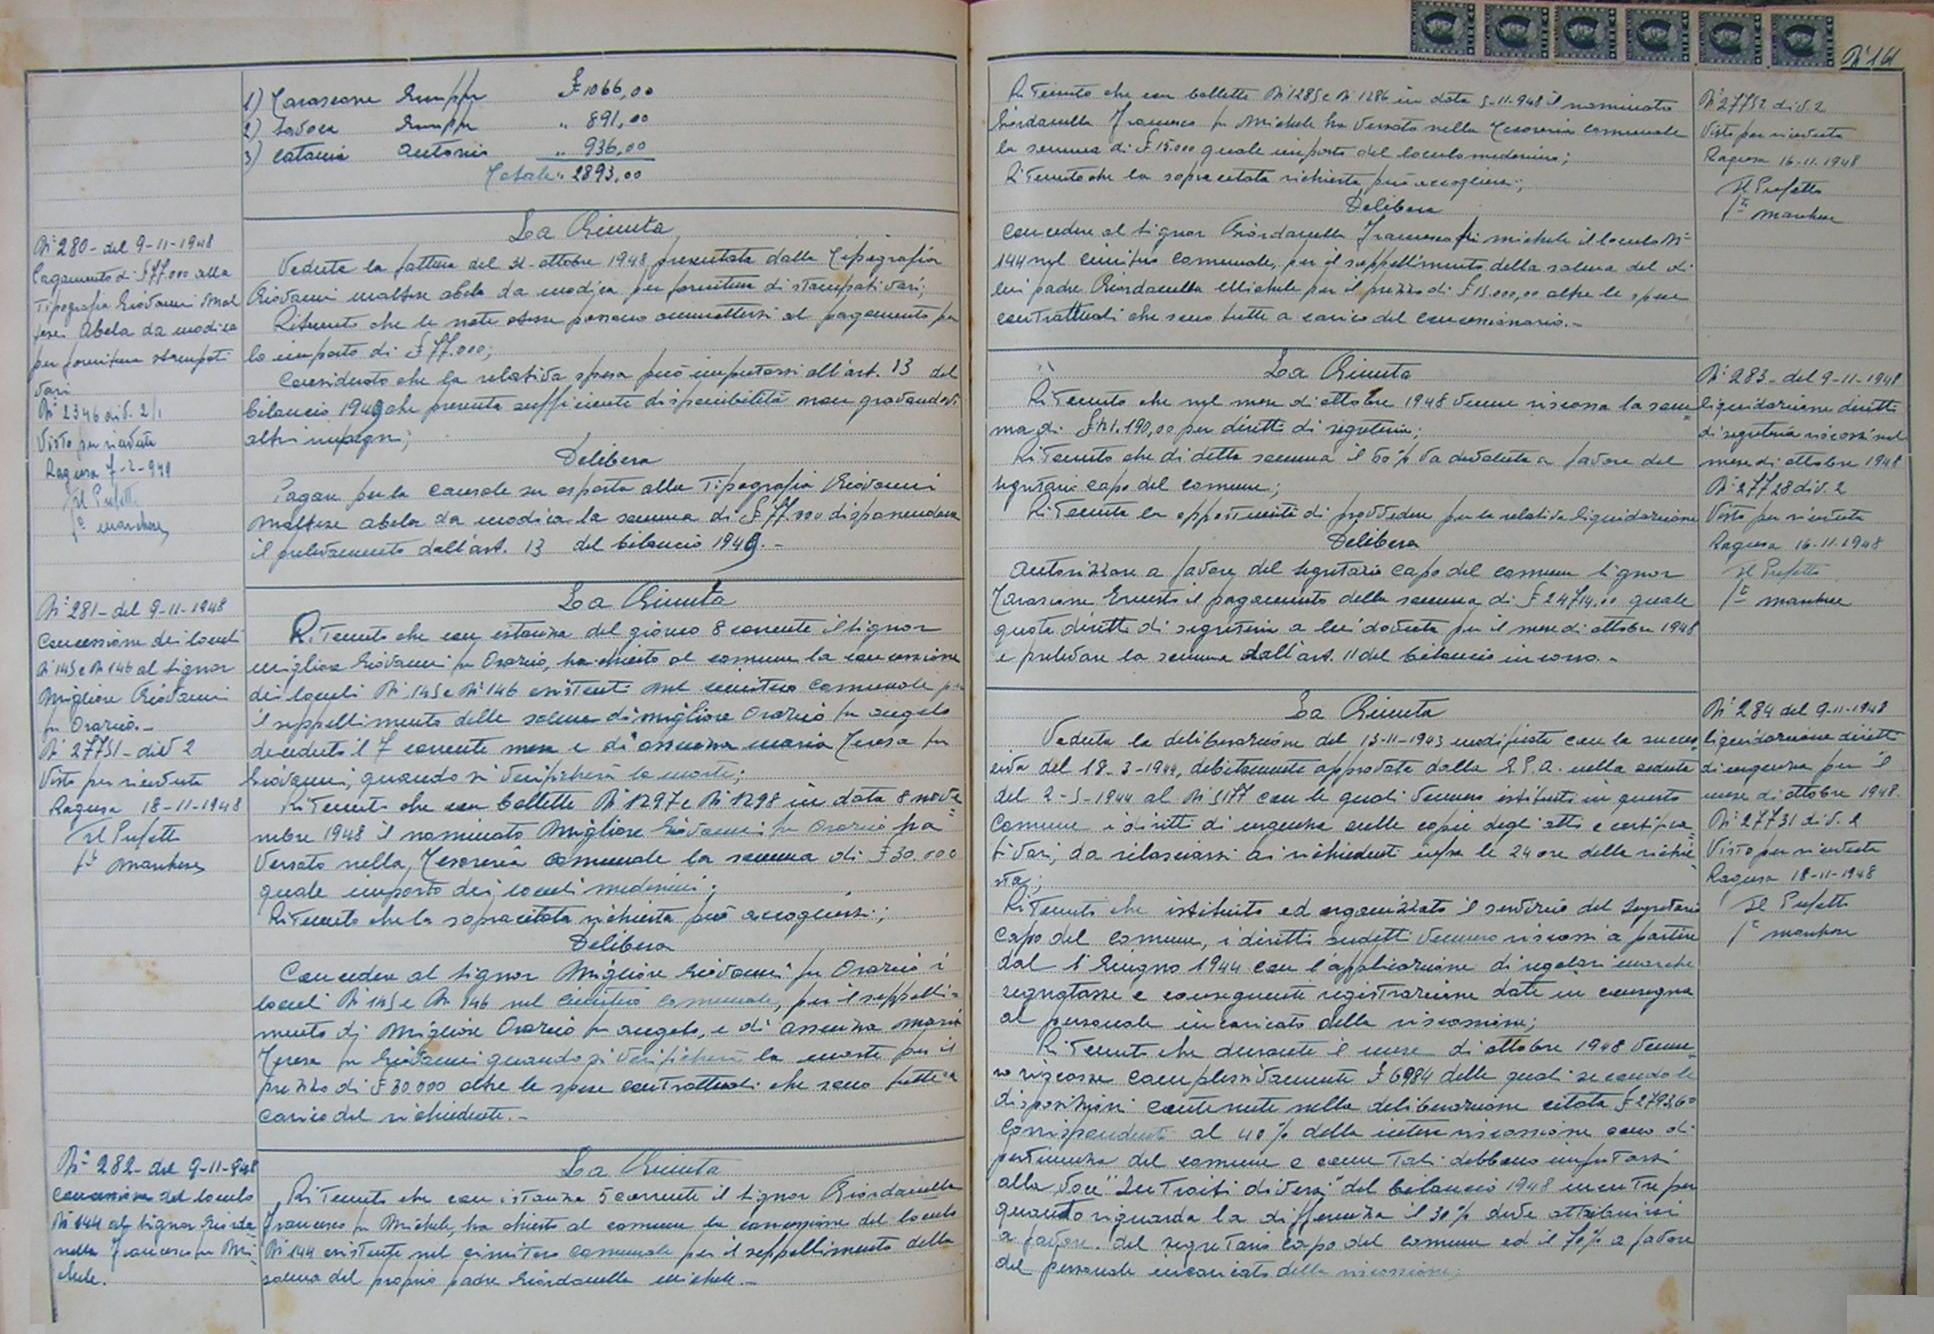 1) Tarascone Giuseppe £ 1066,00
2) Savoca Giuseppe " 891,00
3) Catania Antonio " 936,00
Totale " 2893,00
N° 280 - del 9-11-1948
Pagamento di £ 77.000 alla
Tipografia Giovanni Mal
tese Abela da Modica
per fornitura stampati
vari
N° 2346 div. 2/1
Visto per ricevuta
Ragusa 7-2-949
Il Prefetto
f° Marchese
La Giunta
Veduta la fattura del 31 ottobre 1948 presentata dalla Tipografia
Giovanni Maltese Abela da Modica per fornitura di stampati vari;
Ritenuto che le note stesse possono ammettersi al pagamento per
lo importo di £ 77.000;
Considerato che la relativa spesa può imputarsi all'art. 13 del
bilancio 1949 che presenta sufficiente disponibilità non gravandovi
altri impegni;
Delibera
Pagare per la causale su esposta alla Tipografia Giovanni
Maltese Abela da Modica la somma di £ 77.000 disponendone
il prelevamento dall'art. 13 del bilancio 1949. -
N° 281 - del 9-11-1948
Concessione dei loculi
N° 145 e N° 146 al Signor
Migliore Giovanni
fu Orazio. -
N° 27751 - div 2
Visto per ricevuta
Ragusa 18-11-1948
Il Prefetto
f° Marchese
La Giunta
Ritenuto che con istanza del giorno 8 corrente il Signor
Migliore Giovanni fu Orazio, ha chiesto al comune la concessione
dei loculi N° 145 e N° 146 esistenti nel cimitero comunale per
il seppellimento delle salme di Migliore Orazio fu Angelo
deceduto il 7 corrente mese e di Assenza Maria Teresa fu
Giovanni, quando si verificherà la morte;
Ritenuto che con bollette N° 1297 e N° 1298 in data 8 nove=
mbre 1948 il nominato Migliore Giovanni fu Orazio ha
versato nella Tesoreria comunale la somma di £ 30.000
quale importo dei loculi medesimi;
Ritenuto che la sopracitata richiesta può accogliersi;
Delibera
Concedere al Signor Migliore Giovanni fu Orazio i
loculi N° 145 e N° 146 nel cimitero comunale, per il seppelli=
mento di Migliore Orazio fu Angelo, e di Assenza Maria
Teresa fu Giovanni quando si verificherà la morte per il
prezzo di £ 30.000 oltre le spese contrattuali che sono tutte a
carico del richiedente. -
N° 282 - del 9-11-948
Concessione del loculo
N° 144 al Signor Giorda=
nella Francesco fu Mi=
chele.
La Giunta
Ritenuto che con istanza 5 corrente il Signor Giordanella
Francesco fu Michele, ha chiesto al comune la concessione del loculo
N° 144 esistente nel cimitero comunale per il seppellimento della
salma del proprio padre Giordanella Michele. -
N° 161
Ritenuto che con bollette N° 1285 e N° 1286 in data 5-11-948 il nominato
Giordanella Francesco fu Michele ha versato nella Tesoreria comunale
la somma di £ 15.000 quale importo del loculo medesimo;
Ritenuto che la sopracitata richiesta può accogliersi;
Delibera
Concedere al Signor Giordanella Francesco fu Michele il loculo N°
144 nel cimitero comunale, per il seppellimento della salma del di
lui padre Giordanella Michele per il prezzo di £ 15.000,00 oltre le spese
contrattuali che sono tutte a carico del concessionario. -
N° 27752 div. 2
Visto per ricevuta
Ragusa 16-11-1948
Il Prefetto
f° Marchese
La Giunta
Ritenuto che nel mese di ottobre 1948 venne riscossa la som=
ma di £ 41.190,00 per diritti di segreteria;
Ritenuto che di detta somma il 60% va devoluta a favore del
segretario capo del comune;
Ritenuta la opportunità di provvedere per la relativa liquidazione
Delibera
Autorizzare a favore del Segretario Capo del comune Signor
Tarascone Ernesto il pagamento della somma di £ 24714.00 quale
quota diritti di segreteria a lui dovuta per il mese di ottobre 1948
e prelevare la somma dall'art. 11 del bilancio in corso. -
N° 283 - del 9-11-1948
liquidazione diritti
di segreteria riscossi nel
mese di ottobre 1948
N° 27728 div. 2
Visto per ricevuta
Ragusa 16-11-1948
Il Prefetto
f° Marchese
La Giunta
Veduta la deliberazione del 13-11-1943 modificata con la succes
siva del 18-3-1944, debitamente approvata dalla G.P.A. nella seduta
del 2-5-1944 al N° 5177 con le quali vennero istituiti in questo
Comune i diritti di urgenza sulle copie degli atti e certifica=
ti vari, da rilasciarsi ai richiedenti entro le 24 ore della richie
sta;
Ritenuto che istituito ed organizzato il servizio del Segretario
Capo del comune, i diritti sudetti vennero riscossi a partire
dal 1° Giugno 1944 con l'applicazione di regolari marche
segnatasse e conseguente registrazione date in consegna
al personale incaricato della riscossione;
Ritenuto che durante il mese di ottobre 1948 venne=
ro riscosse complessivamente £ 6984 delle quali secondo le
disposizioni contenute nella deliberazione citata £ 2793,60
corrispondenti al 40% della intera riscossione sono di
pertinenza del comune e come tali debbono imputarsi
alla voce "Introiti diversi" del bilancio 1948 mentre per
quanto riguarda la differenza il 30% deve attribuirsi
a favore del segretario capo del comune ed il 70% a favore
del personale incaricato della riscossione;
N° 284 del 9-11-1948
liquidazione diritti
di urgenza per il
mese di ottobre 1948.
N° 27731 div. 2
Visto per ricevuta
Ragusa 18-11-1948
Il Prefetto
f° Marchese